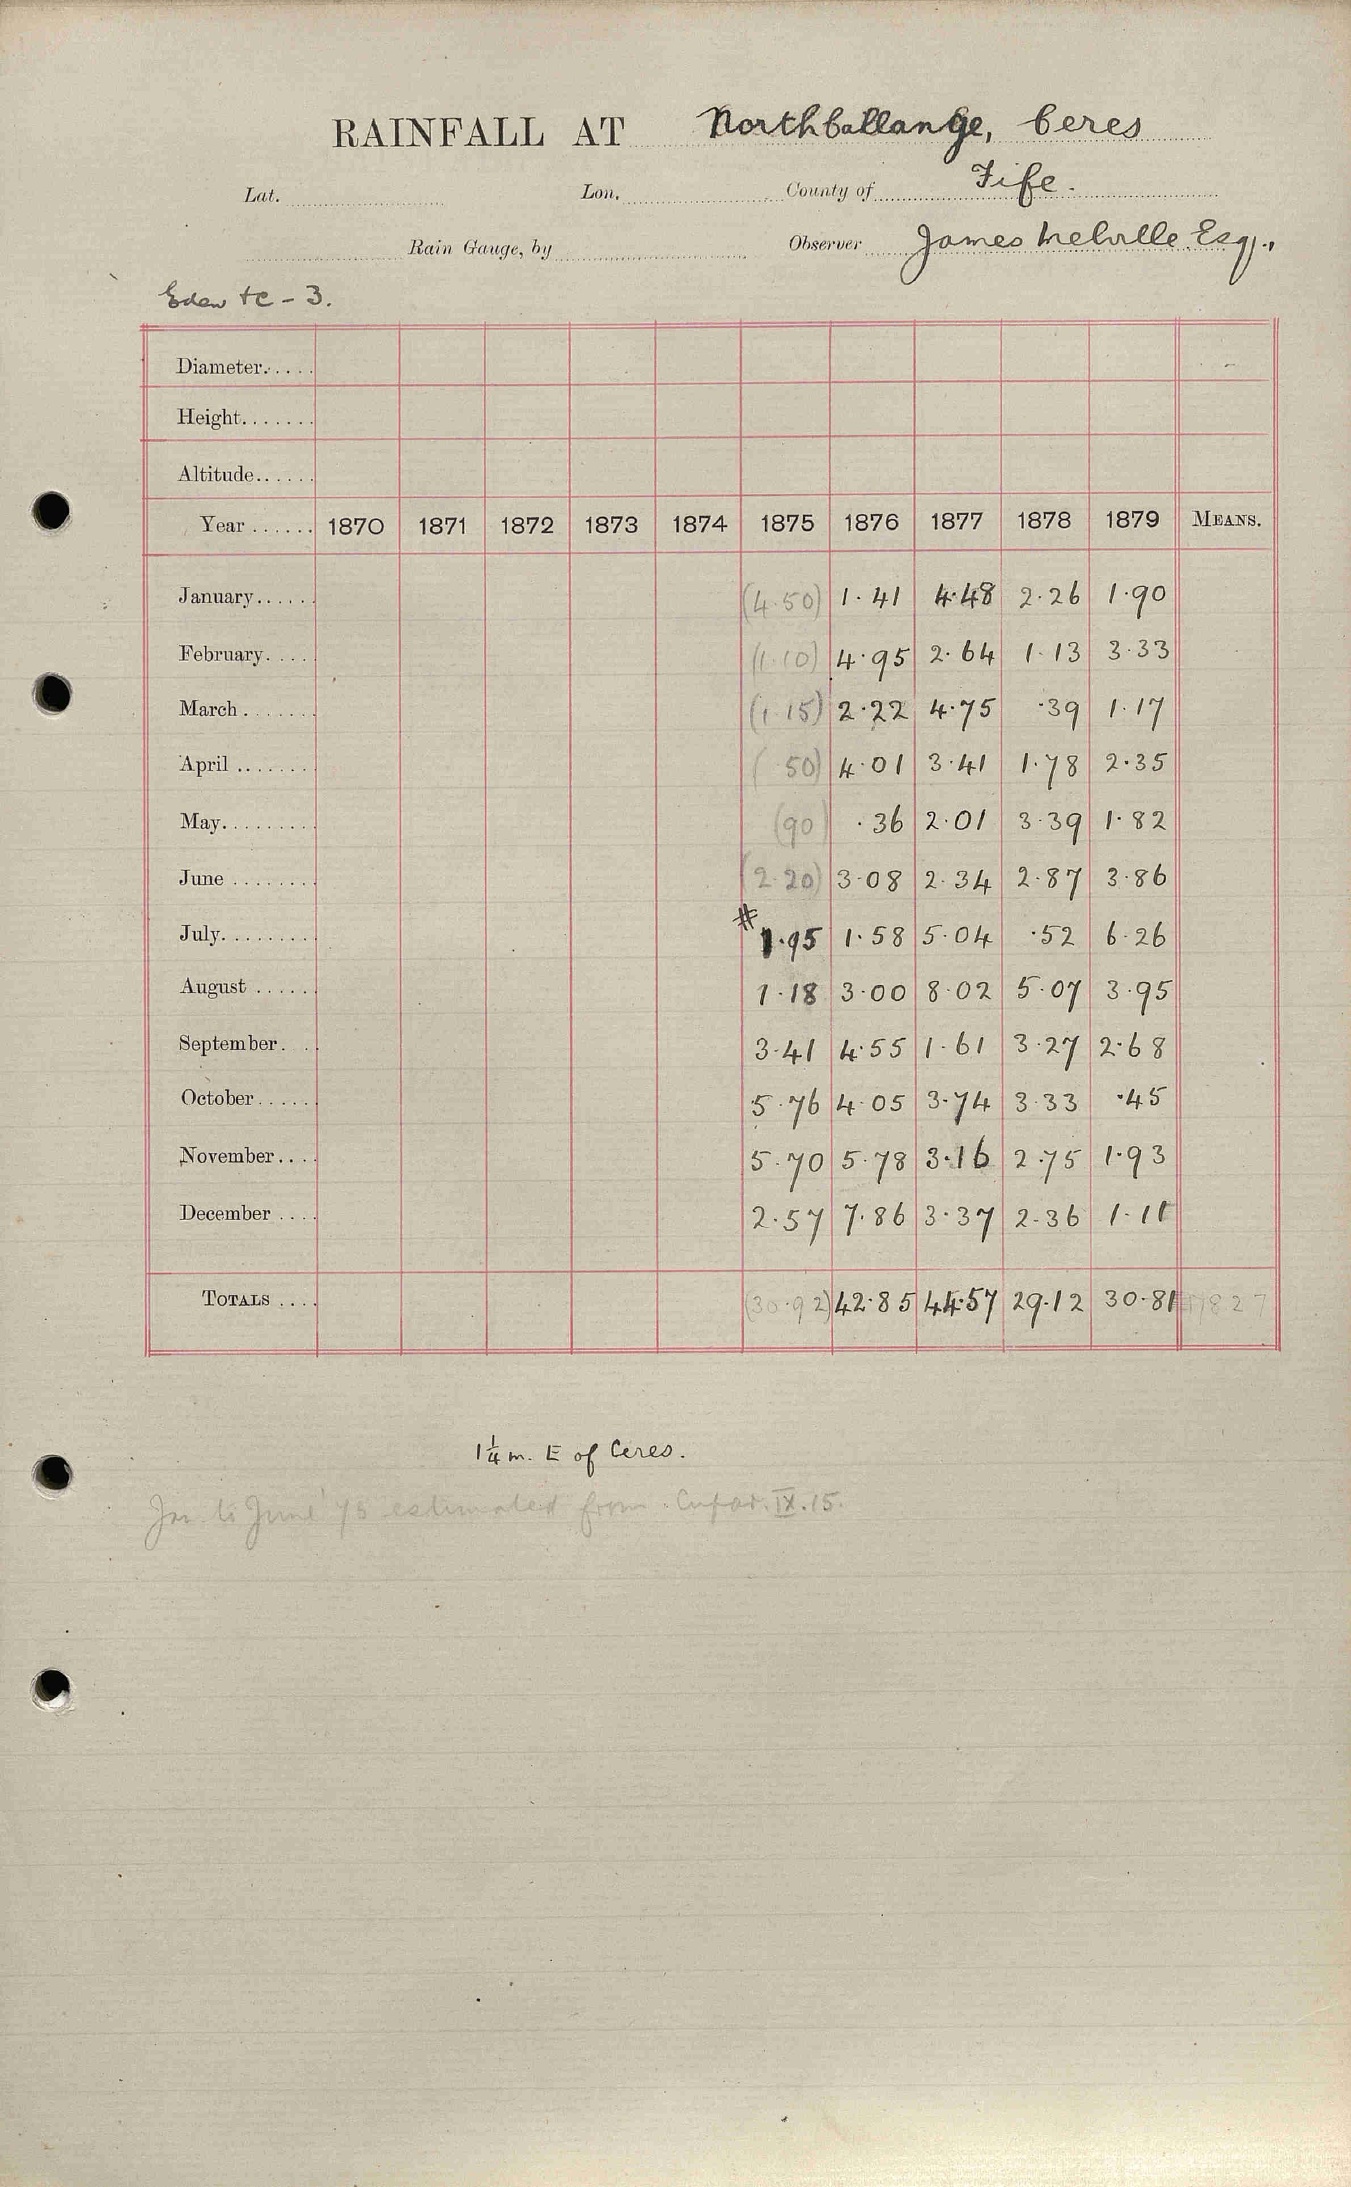 RAINFALL AT Northballange, Ceres
Lat. Lon. County of Fife.
Rain Gauge, by Observer James Melville Esq.,
Eden &c - 3.
Diameter
Height
Altitude
Year 1870 1871 1872 1873 1874 1875 1876 1877 1878 1879 MEANS.
January (4.50) 1.41 4.48 2.26 1.90
February (1.10) 4.95 2.64 1.13 3.33
March (1.15) 2.22 4.75 .39 1.17
April (.50) 4.01 3.41 1.78 2.35
May (90) .36 2.01 3.39 1.82
June (2.20) 3.08 2.34 2.87 3.86
July # 1.95 1.58 5.04 .52 6.26
August 1.18 3.00 8.02 5.07 3.95
September 3.41 4.55 1.61 3.27 2.68
October 5.76 4.05 3.74 3.33 .45
November 5.70 5.78 3.16 2.75 1.93
December 2.57 7.86 3.37 2.36 1.11
TOTALS (30.92) 42.85 44.57 29.12 30.81
1 1/4 m. E of Ceres.
Jan. to June '75 estimated from Cupar. IX.15.